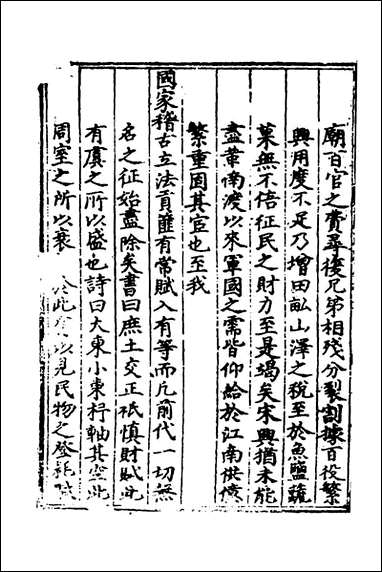 廟百官之費尋後兄弟相殘分裂割據百役繁
興用度不足乃增田畝山澤之稅至於魚鹽蔬
菓無不倍征民之財力至是竭矣宋興猶未能
盡革南渡以來軍國之需皆仰給於江南供億
繁重固其宜也至我
國家稽古立法貢匪有常賦入有等而凡前代一切無
名之征始盡除矣書曰庶土交正祗慎財賦此
有虞之所以盛也詩曰大東小東杼軸其空此
周室之所以衰 於此 以見民物之登耗